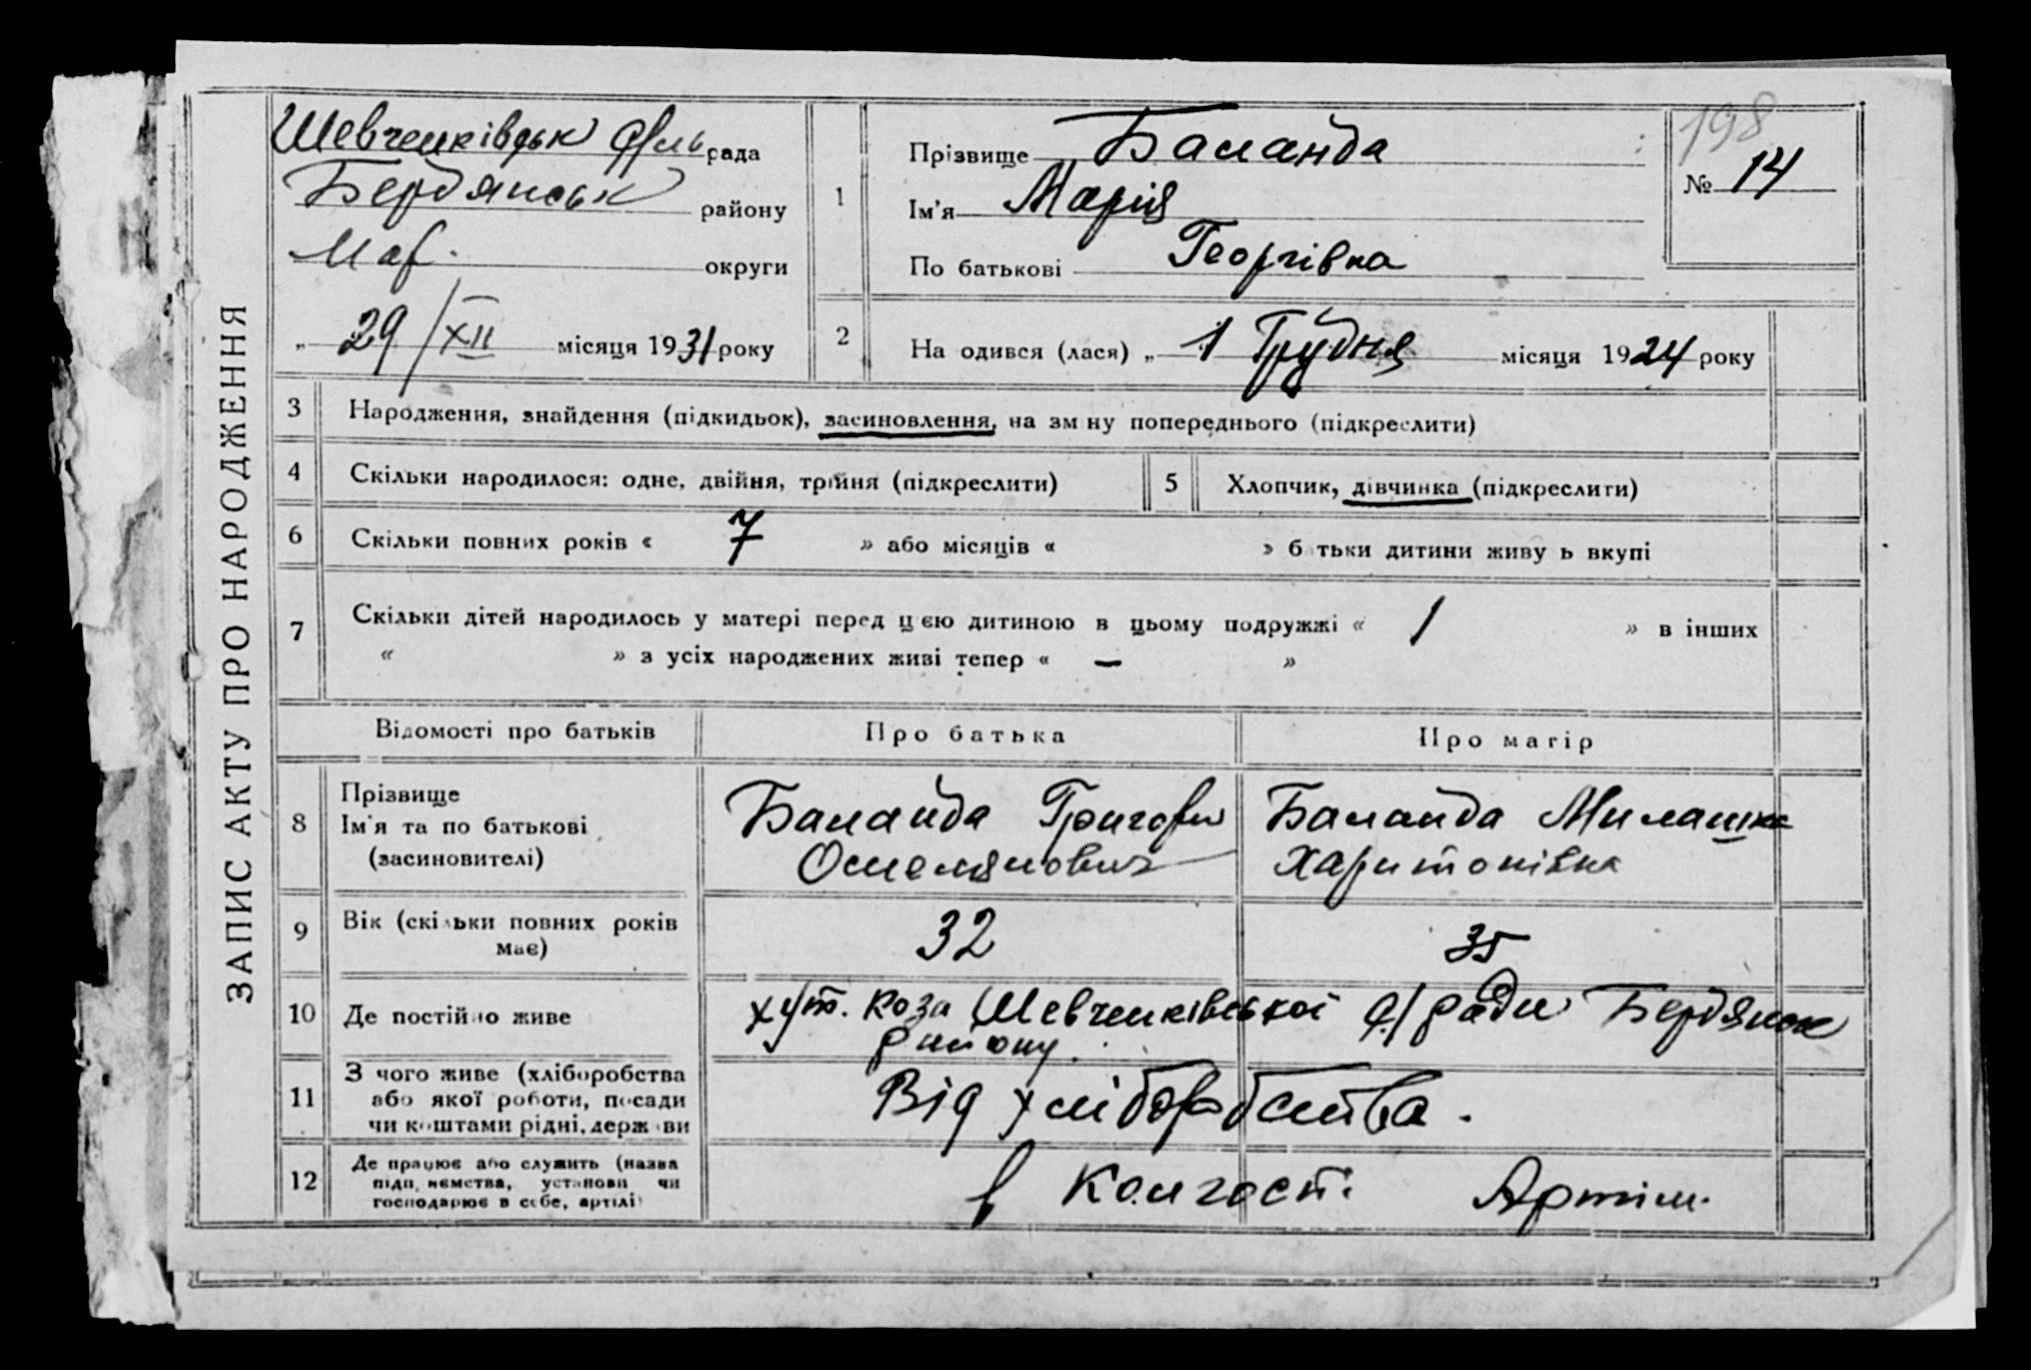 ЗАПИС АКТУ ПРО НАРОДЖЕННЯ
Шевченківськ сіль рада
Бердянськ району
Мар. округи
„ 29/XII місяця 1931 року
1
Прізвище Баланда
Ім'я Марія
По батькові Георгівна
198
№ 14
2
На одився (лася) „ 1 Грудня місяця 1924 року
3 Народження, знайдення (підкидьок), засиновлення, на зм ну попереднього (підкреслити)
4 Скільки народилося: одне, двійня, трійня (підкреслити)
5 Хлопчик, дівчинка (підкреслити)
6 Скільки повних років « 7 » або місяців « » б тьки дитини живу ь вкупі
7 Скільки дітей народилось у матері перед цією дитиною в цьому подружжі « 1 » в інших
« » з усіх народжених живі тепер « — »
Відомості про батьків Про батька Про матір
8
Прізвище
Ім'я та по батькові
(засиновителі)
Баланда Григорій
Омелянович
Баланда Милашка
Харитонівна
9 Вік (скільки повних років
має)
32
35
10 Де постійно живе
хут. Коза Шевченківської с/ради Бердянськ
району.
11
З чого живе (хліборобства
або якої роботи, посади
чи коштами рідні, держ ви
Від хліборобства.
12
Де працює або служить (назва
підп. ємства, установи чи
господарює в себе, артілі
в колгосп. Артіл.